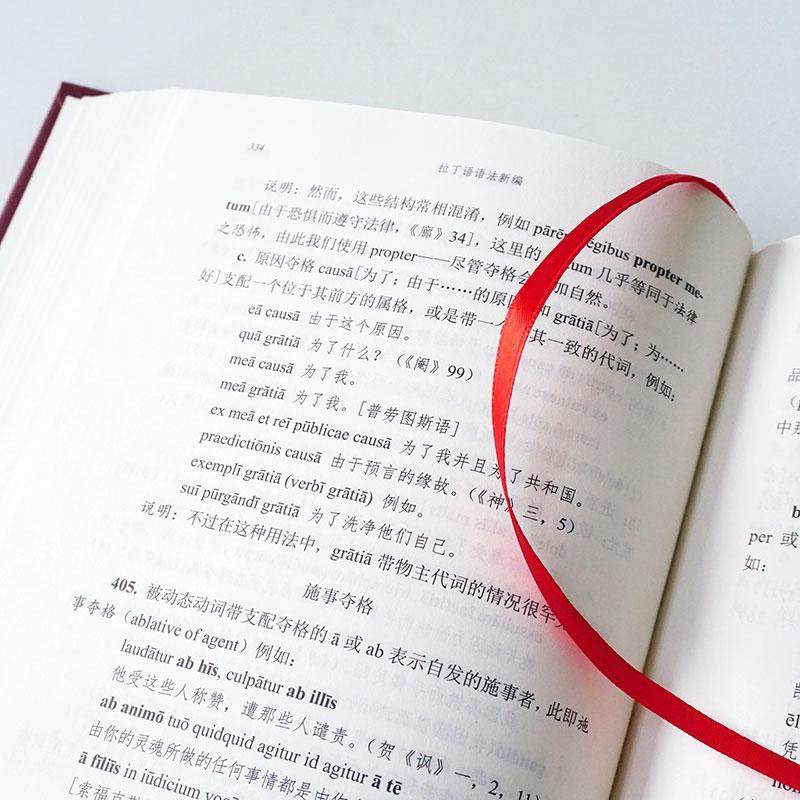 334
拉丁语语法新编
说明：然而，这些结构常相混淆，例如 pārē egibus propter me-
tum[由于恐惧而遵守法律，《廊》34]，这里的 um 几乎等同于法律
之恐怖，由此我们使用 propter——尽管夺格会 加自然。
c. 原因夺格 causā[为了；由于……的原因 和 grātiā[为了；为……
好]支配一个位于其前方的属格，或是带一 其一致的代词，例如：
eā causā 由于这个原因。
quā grātiā 为了什么？（《阉》99）
meā causā 为了我。
meā grātiā 为了我。[普劳图斯语]
ex meā et reī pūblicae causā 为了我并且为了共和国。
praedictiōnis causā 由于预言的缘故。（《神》三，5）
exemplī grātiā (verbī grātiā) 例如。
suī pūrgāndī grātiā 为了洗净他们自己。
说明：不过在这种用法中，grātiā 带物主代词的情况很罕
施事夺格
405. 被动态动词带支配夺格的 ā 或 ab 表示自发的施事者，此即施
事夺格（ablative of agent）例如：
laudātur ab hīs, culpātur ab illīs
他受这些人称赞，遭那些人谴责。（贺《讽》一，2，11）
ab animō tuō quidquid agitur id agitur ā tē
由你的灵魂所做的任何事情都是由你
ā fīliīs in iūdicium vocā
[索福克
品
中那
b
per 或
如：
ēl
凭